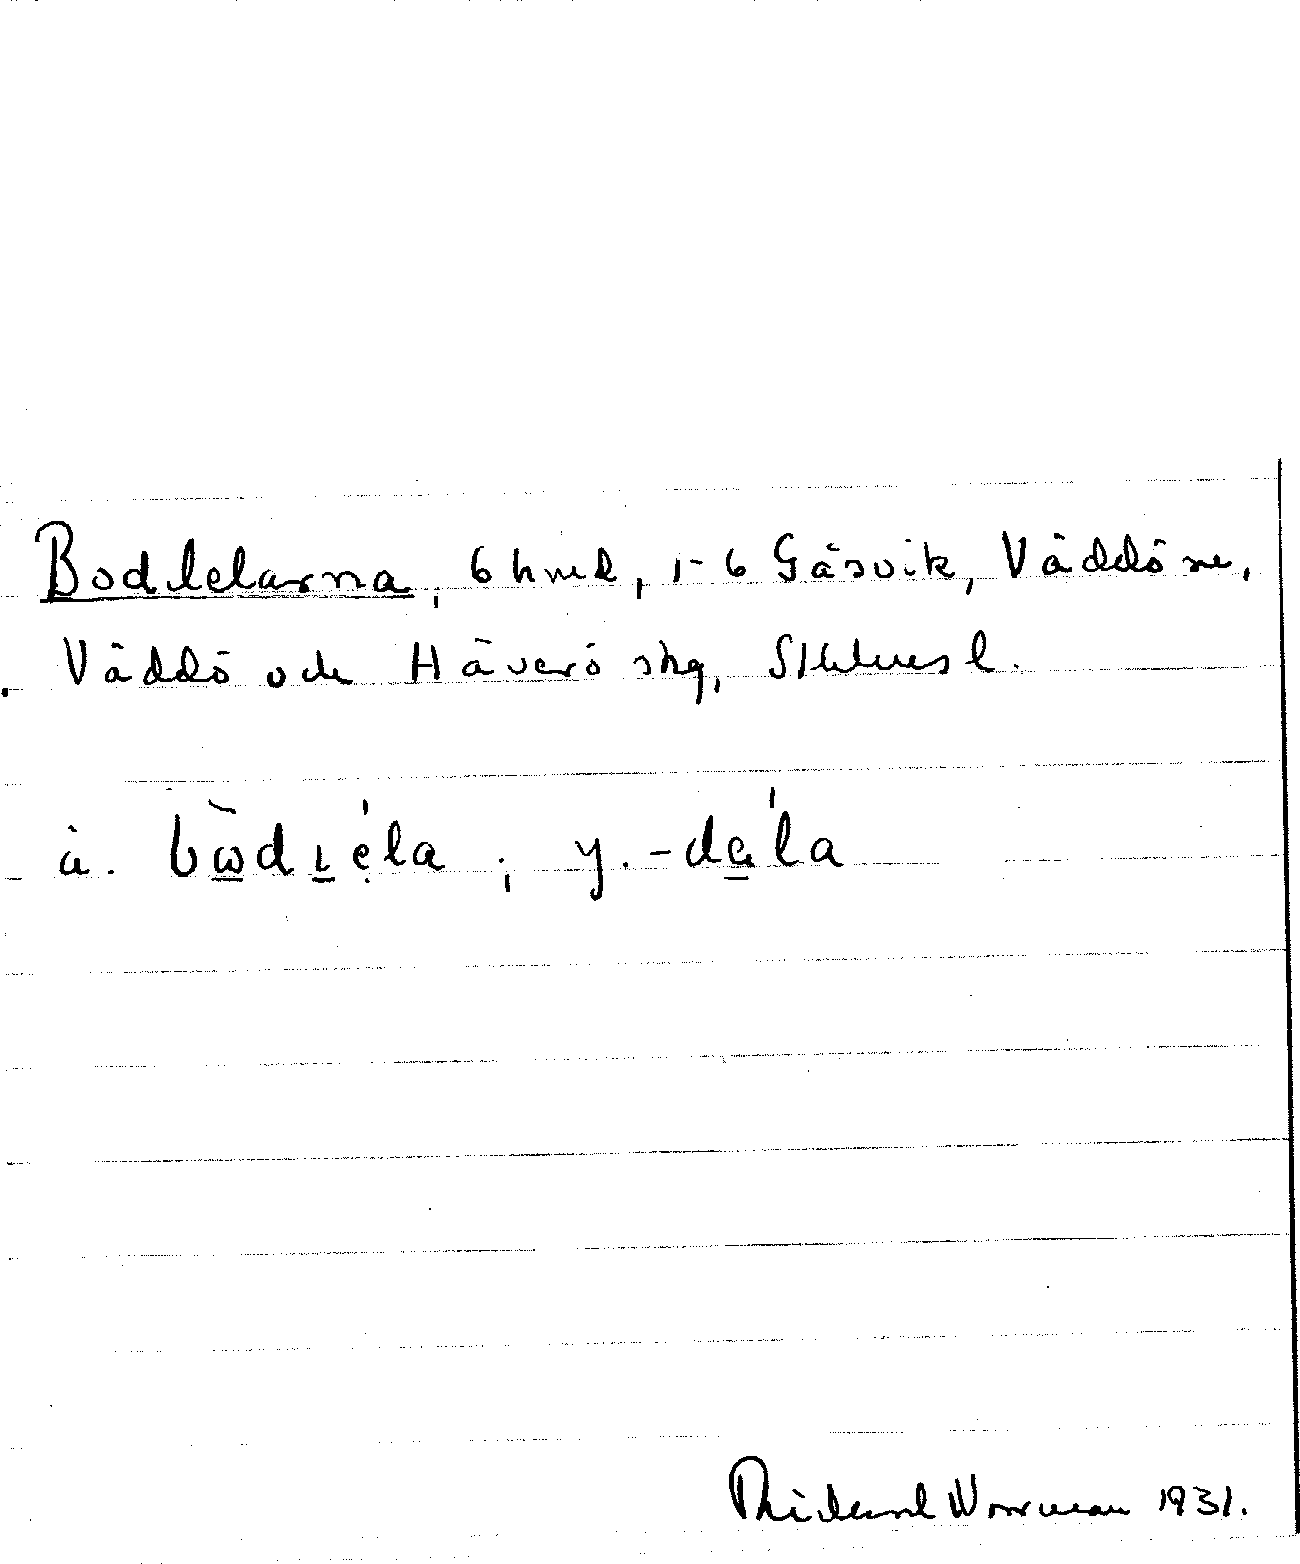 Boddelarna, 6 hmd, 1-6 Gåsvik, Väddö sn,
Väddö och Häverö skg, Sthlms l.
ä. bὼdɩẹ́la ; y. -dɑ́la
Rickard Norrman 1931.